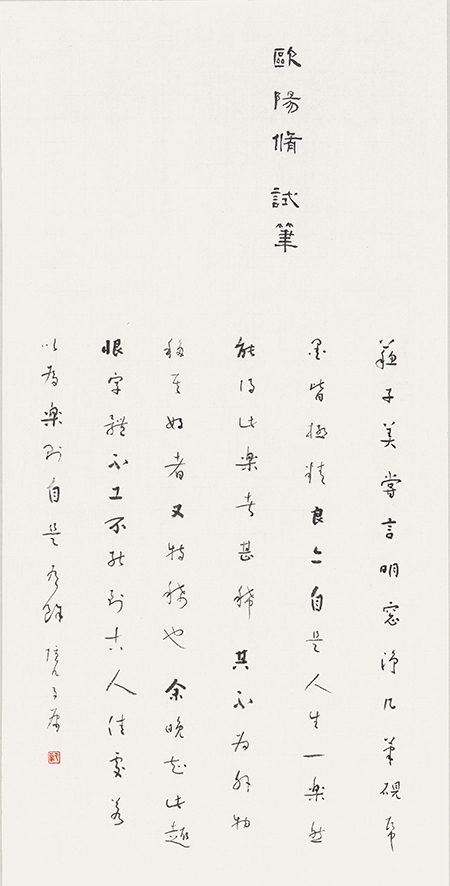 歐陽脩 試筆
蘓子美嘗言明窓淨几筆硯帋
墨皆極精良亦自是人生一樂然
能得此樂者甚稀其不為外物
移其好者又特稀也余晚知此趣
恨字體不工不能到古人佳處若
以為樂則自是有餘